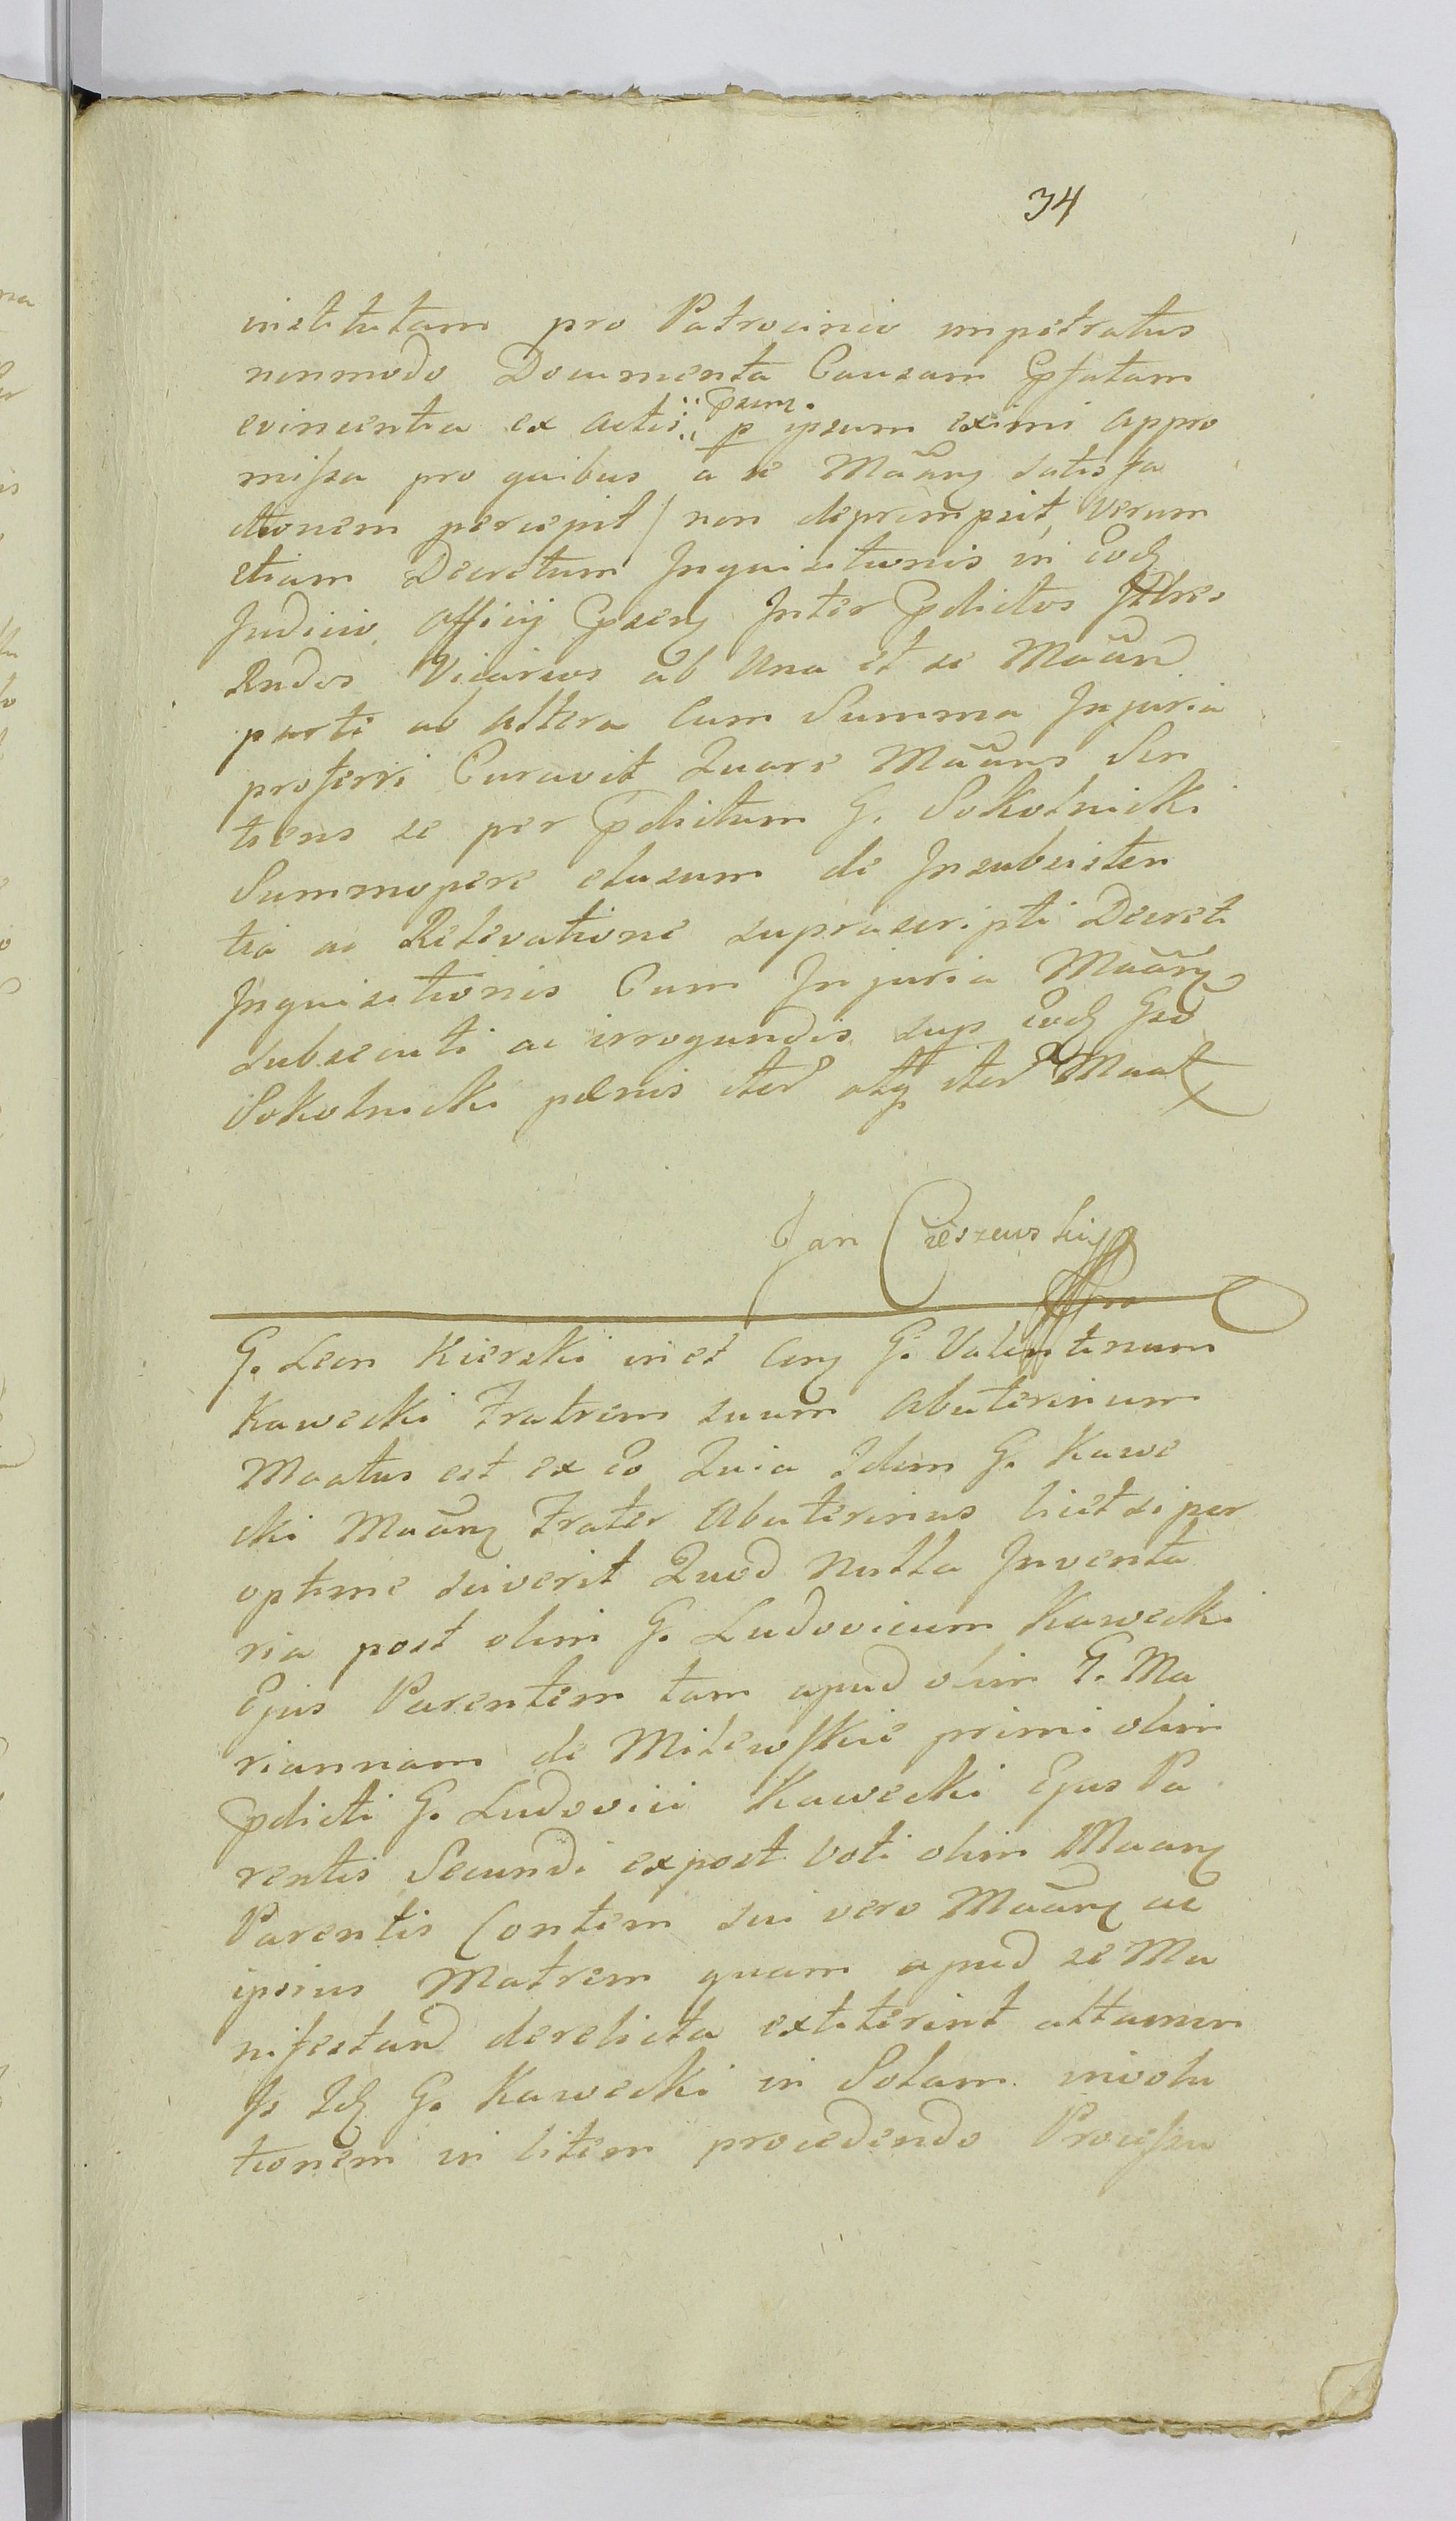 34
institutam pro Patrocinio impetratus
nonmodo Documenta Causam p̃fatam
evincentia ex actis p̃sent.
p ipsum eximi appro
missa pro quibus a se Mãan. satisfa
ctionem percepit / non deprompsit, verum
etiam Decretum Inquisitionis in eod.
Judicio Officij p̃sen. Inter p̃dictos
Rndos Vicarios ab una et se Mãand
parti ab altera Cum Summa Injuria
proferri Curavit Quare Mãans Sen
tiens se per p̃dictum G. Sokolnicki
Summopere elusum de Insubsisten
tia ac Relevatione suprascripti Decreti
Inquisitionis Cum Injuria Mãan.
subsecuti ac irrogandis sup eod. Gso
Sokolnicki pœnis iter. atq. iter. Maat
Jan Cieszewski
G. Leon Kierski in et con. G. Valentinum
Kawecki Fratrem suum Abuterinum
Maatus est ex eo Quia Idem G. Kawe
cki Mãan. Frater Abuterinus licet siper
optime sciverit Quod Nulla Inventa
ria post olim G. Ludovicum Kawecki
Ejus Parentem tam apud olim G. Ma
riannam de Milewskie primi olim
p̃dicti G. Ludovici Kawecki Ejus Pa
rentis Secundi expost voti olim Maan.
Parentis Contem sui vero Mãan. ac
ipsius Matrem quam apud se Ma
nifestand derelicta extiterint attamen
Is Id. G. Kawecki in Solam involu
tionem in litem procedendo Processu